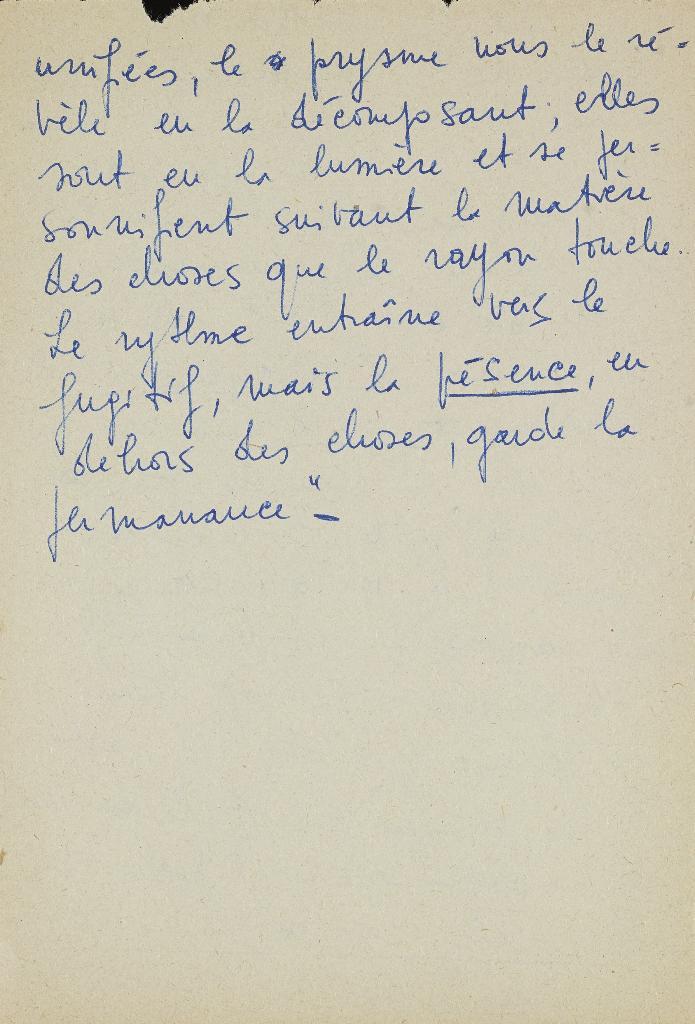 unifiées, le prysme nous le ré-
vèle en la décomposant, elles
sont en la lumière et se per=
sonnifient suivant la matière
des choses que le rayon touche.
Le rythme entraîne vers le
fugitif, mais la présence, en
dehors des choses, garde la
permanance" -